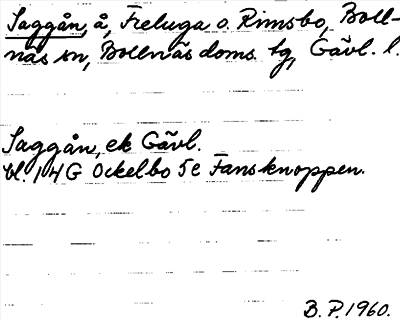 Saggån, å, Freluga o. Rimsbo, Boll-
näs sn, Bollnäs doms. tg, Gävl. l.
Saggån, ek Gävl.
bl. 14G Ockelbo 5e Fansknoppen.
B. P. 1960.